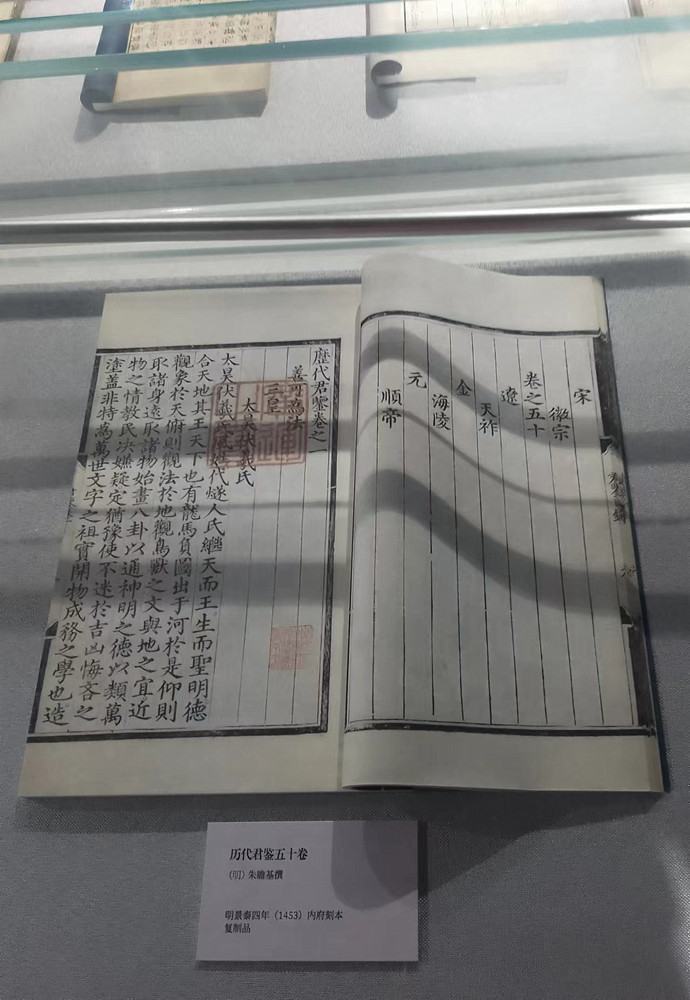 宋
徽宗
卷之五十
遼
天祚
金
海陵
元
順帝
歷代君鑒卷之一
善可為法
三皇
太昊伏羲氏
太昊伏羲氏風姓代燧人氏繼天而王生而聖明德
合天地其王天下也有龍馬負圖出于河於是仰則
觀象於天俯則觀法於地觀鳥獸之文與地之宜近
取諸身遠取諸物始畫八卦以通神明之德以類萬
物之情教民決嫌疑定猶豫使不迷於吉凶悔吝之
塗蓋非特為萬世文字之祖實開物成務之學也造
历代君鉴五十卷
(明) 朱瞻基撰
明景泰四年（1453）内府刻本
复制品